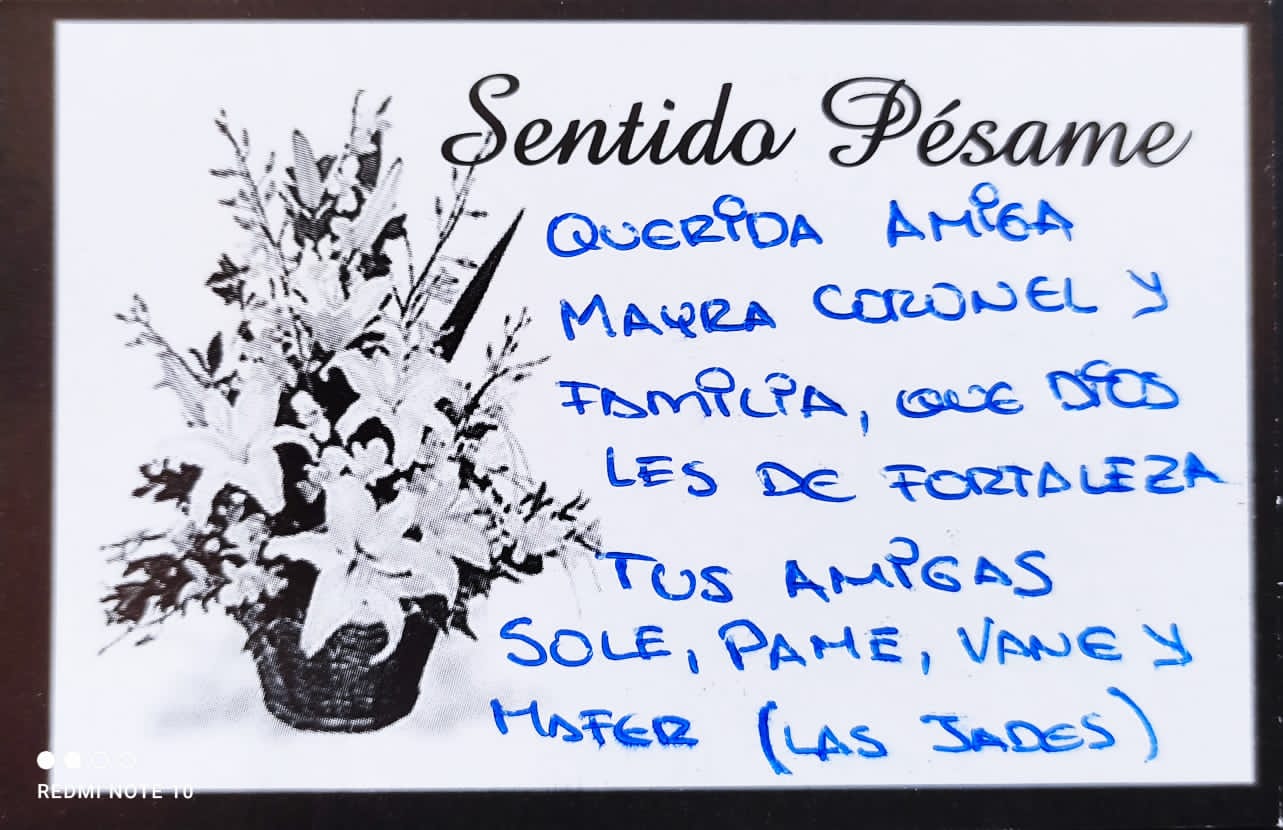 Sentido Pésame
QUERIDA AMIGA
MAYRA CORONEL Y
FAMILIA, QUE DIOS
LES DE FORTALEZA
TUS AMIGAS
SOLE, PAME, VANE Y
MAFER (LAS JADES)
REDMI NOTE 10